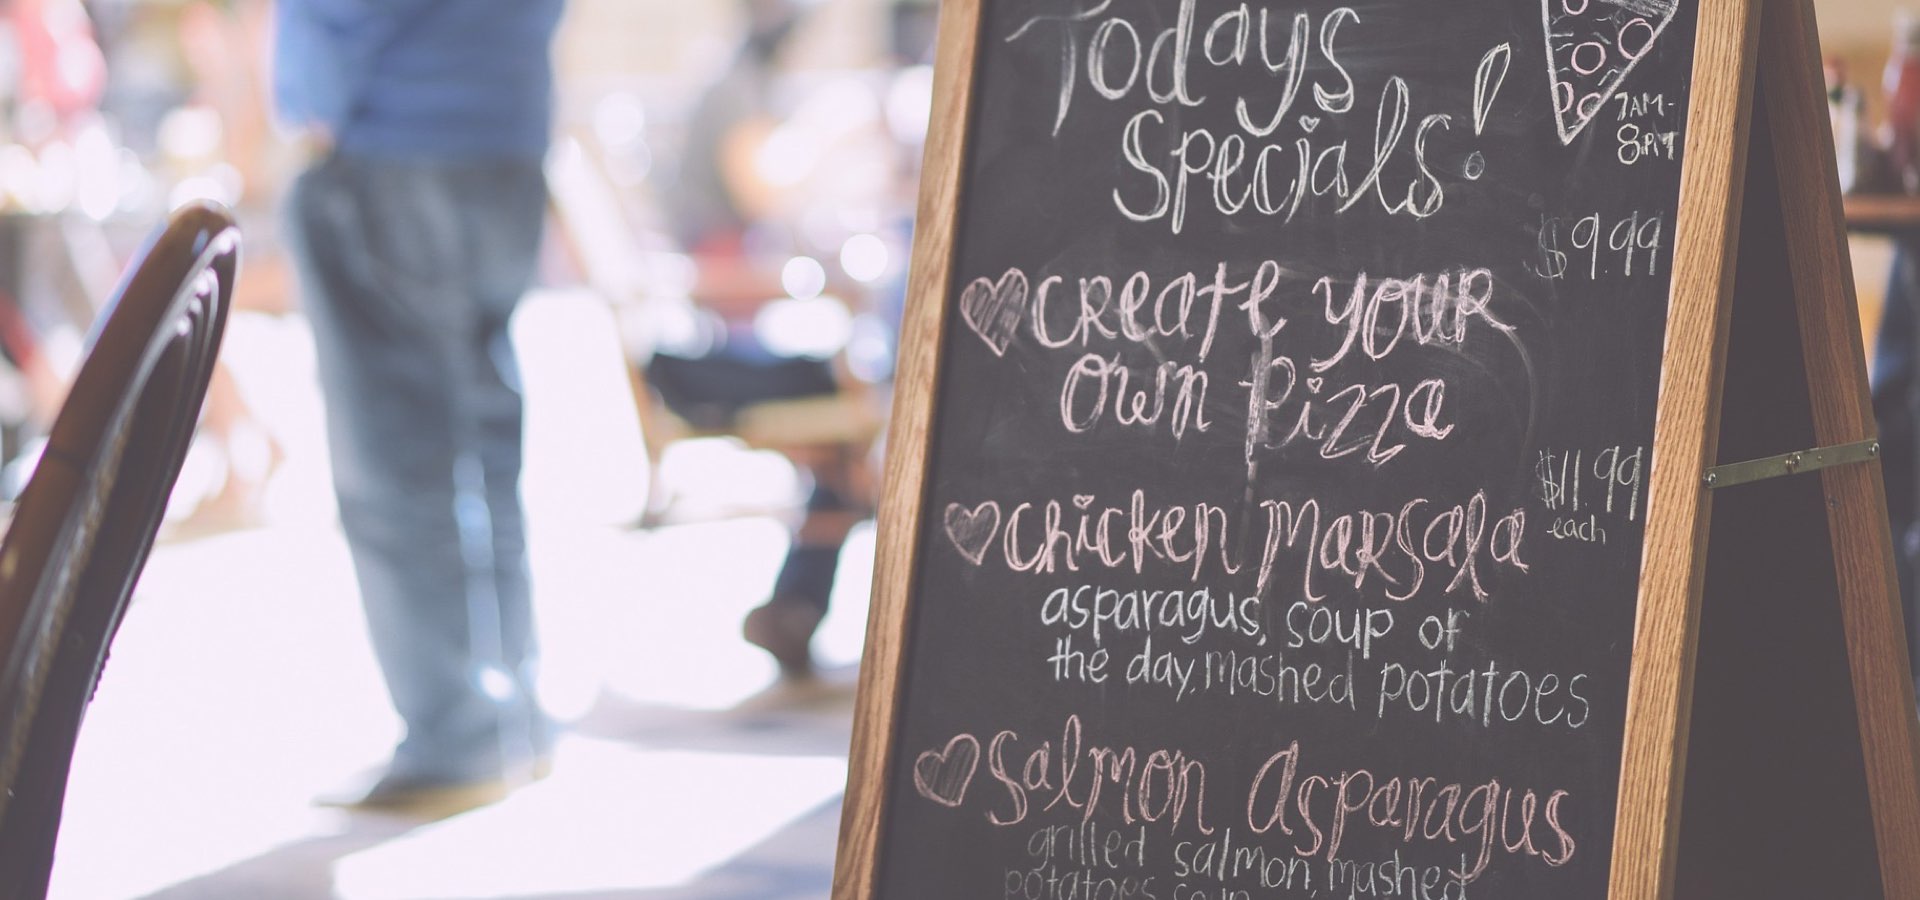 Todays
Specials!
7AM-
8PM
$9.99
♡ Create your
Own Pizza
$11.99
each
♡ Chicken Marsala
asparagus, soup of
the day, mashed potatoes
♡ Salmon Asparagus
grilled salmon, mashed
potatoes soup